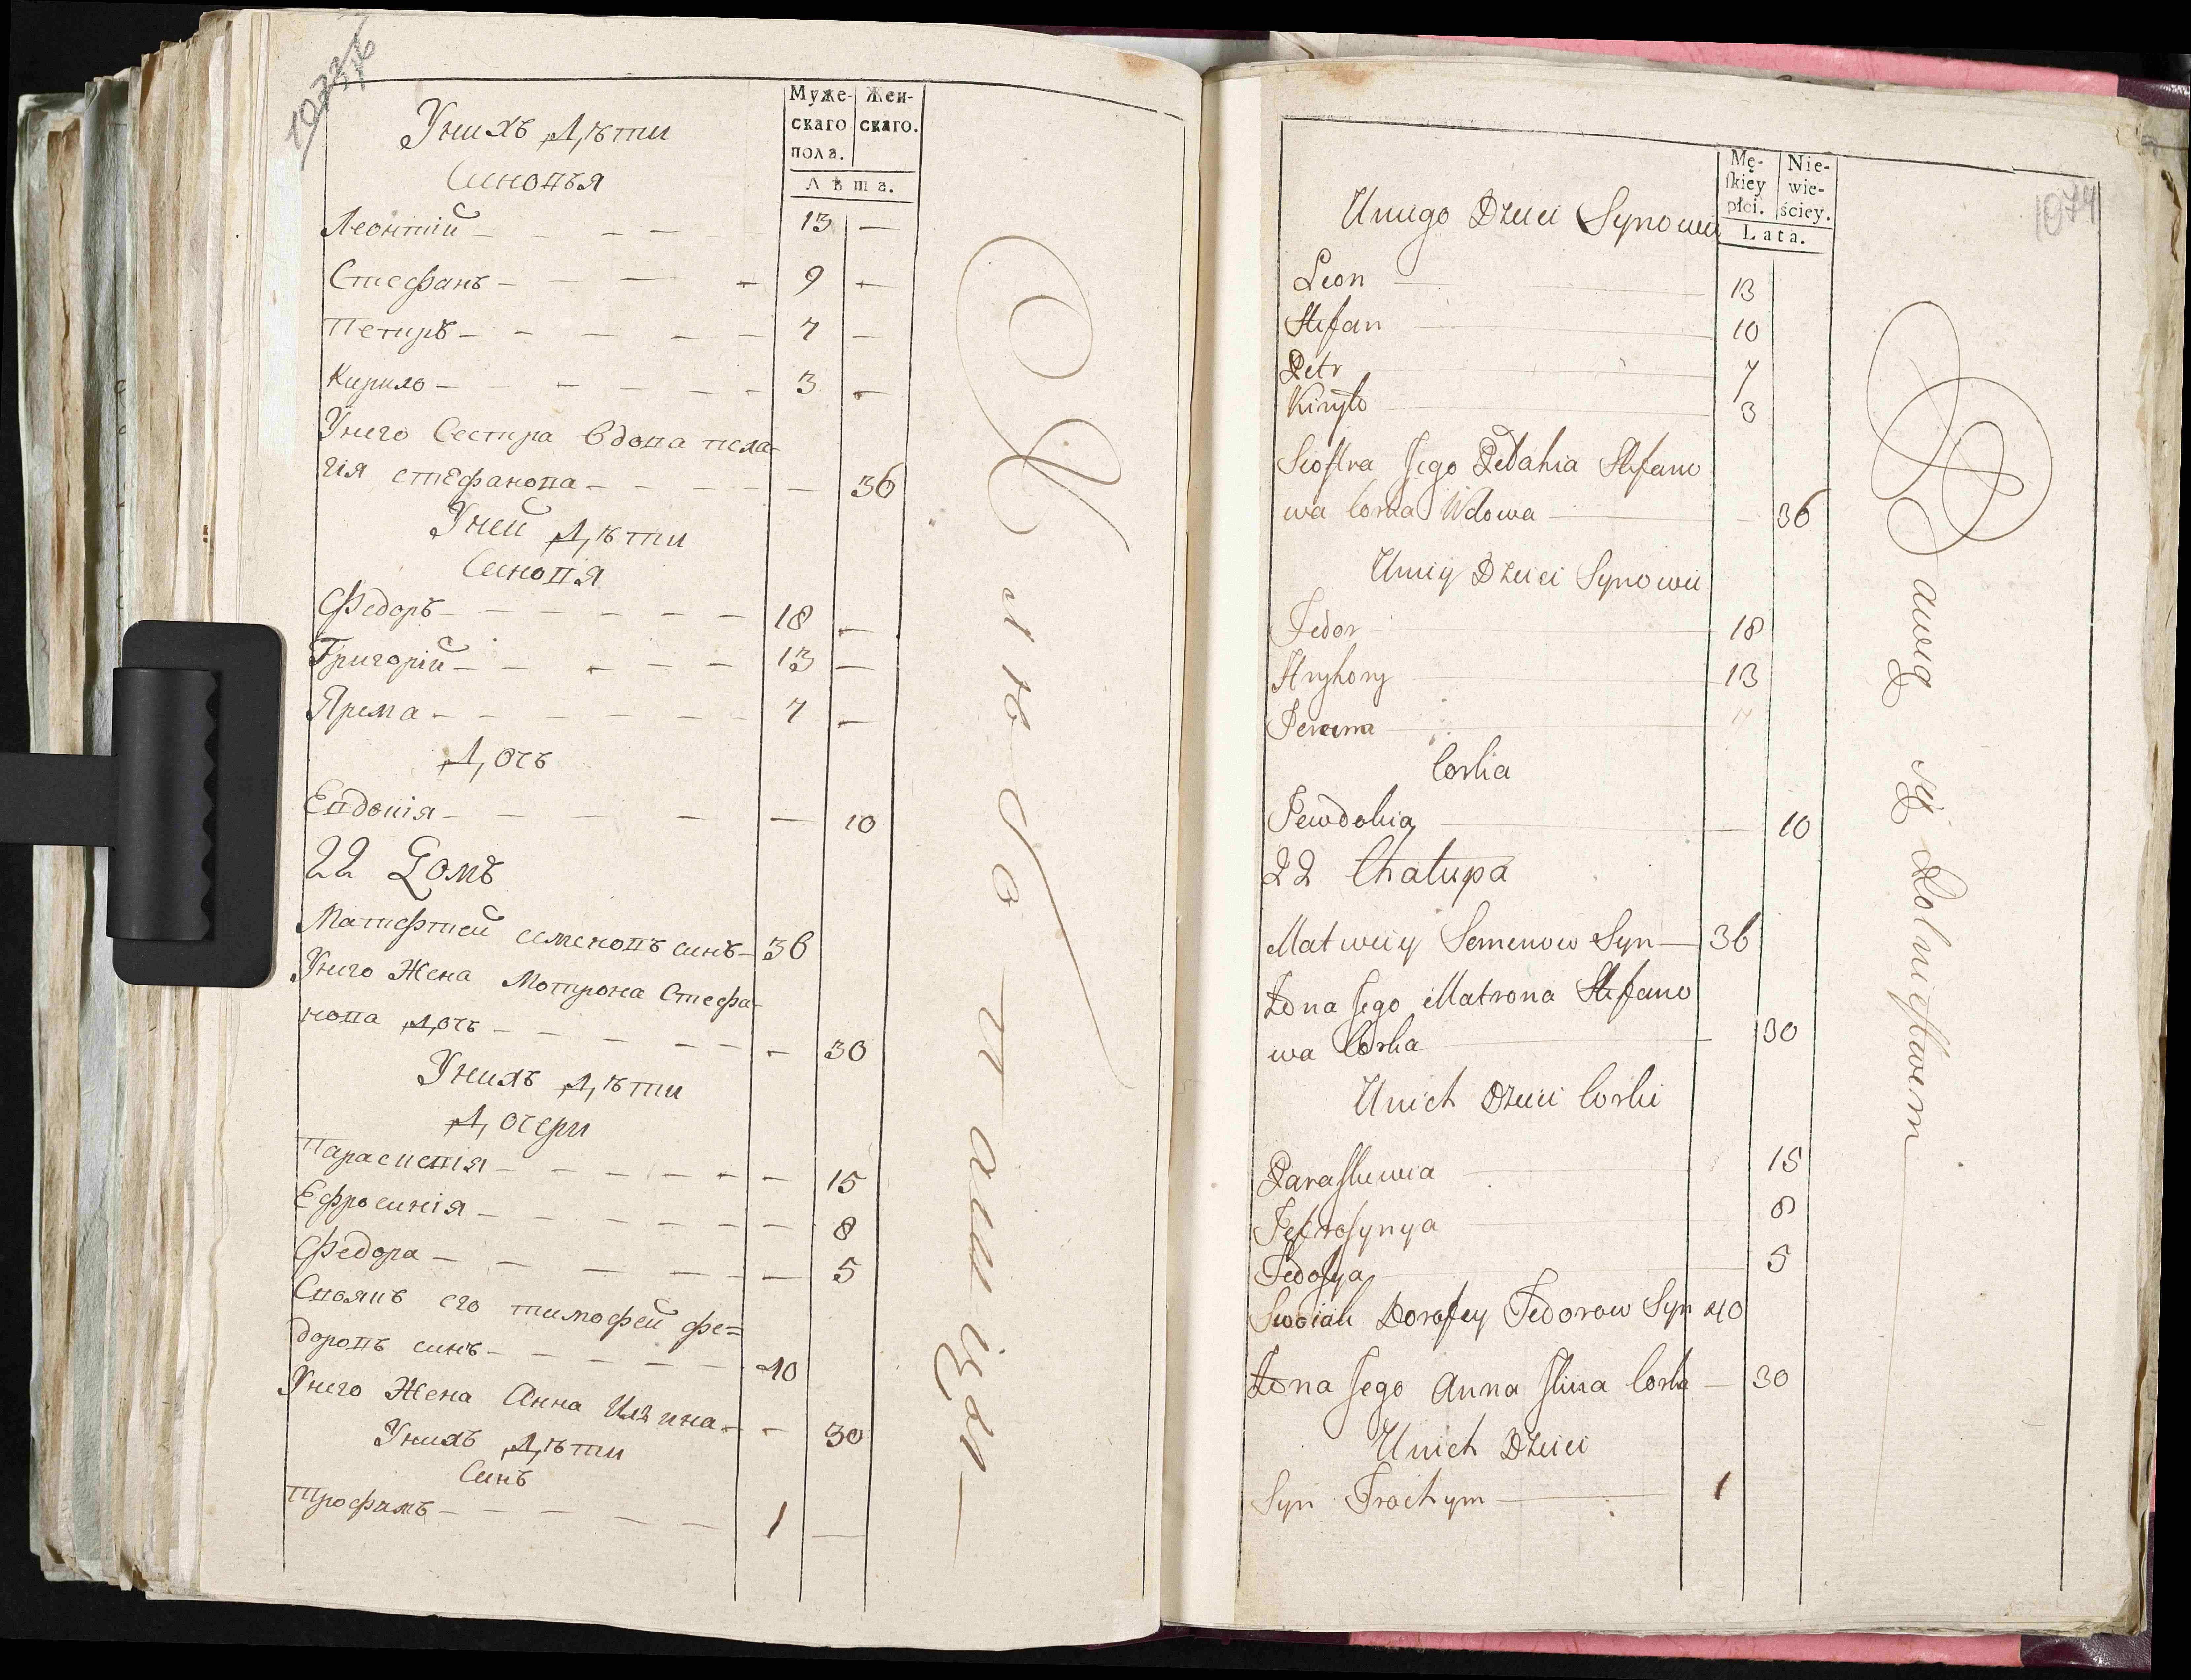 Муже-
скаго
пола.
Жен-
скаго.
Лѣта.
Унихъ Дѣти
Синовья
Леонтій — 13 —
Стефанъ — 9 —
Петръ — 7 —
Кирило — 3 —
Унего Сестра вдова пела-
гія стефанова — 36
Уней Дѣти
Синовя
Федоръ — 18 —
Григорій — 13 —
Ярема — 7 —
Дочъ
Евдокія — 10
22 Домъ
Матефтей семеновъ синъ — 36
Унего Жена Мотрона Стефа-
нова дочъ — 30
Унихъ Дѣти
Дочери
Параскевія — 15
Ефросинія — 8
Федора — 5
Своякъ его тимофей фе=
доровъ синъ — 40
Унего Жена Анна Илъина — 30
Унихъ Дѣти
Синъ
Трофимъ — 1 —
1074
Mę-
skiey
płci.
Nie-
wie-
ściey.
Lata.
Uniego Dzieci Synowie
Leon — 13
Stefan — 10
Petr — 7
Kiryło — 3
Siostra Jego Pelahia Stefano
wa Corka Wdowa — 36
Uniey Dzieci Synowie
Fedor — 18
Hryhory — 13
Jerema — 7
Corka
Jewdokia — 10
22 Chałupa
Matwiey Semenow Syn — 36
Żona Jego Matrona Stefano
wa Corka — 30
Unich Dzieci Corki
Paraskiewia — 15
Jefrosynya — 8
Fedosya — 5
Swoiak Dorofey Fedorow Syn 40
Żona Jego Anna Jlina Corka — 30
Unich Dzieci
Syn Trochym — 1
Bawią się Rolnictwem